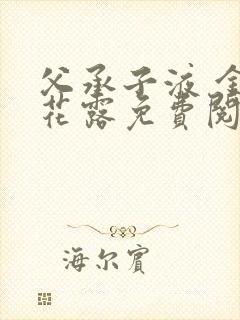 父承子液 金
花露免費閱
海尔賓